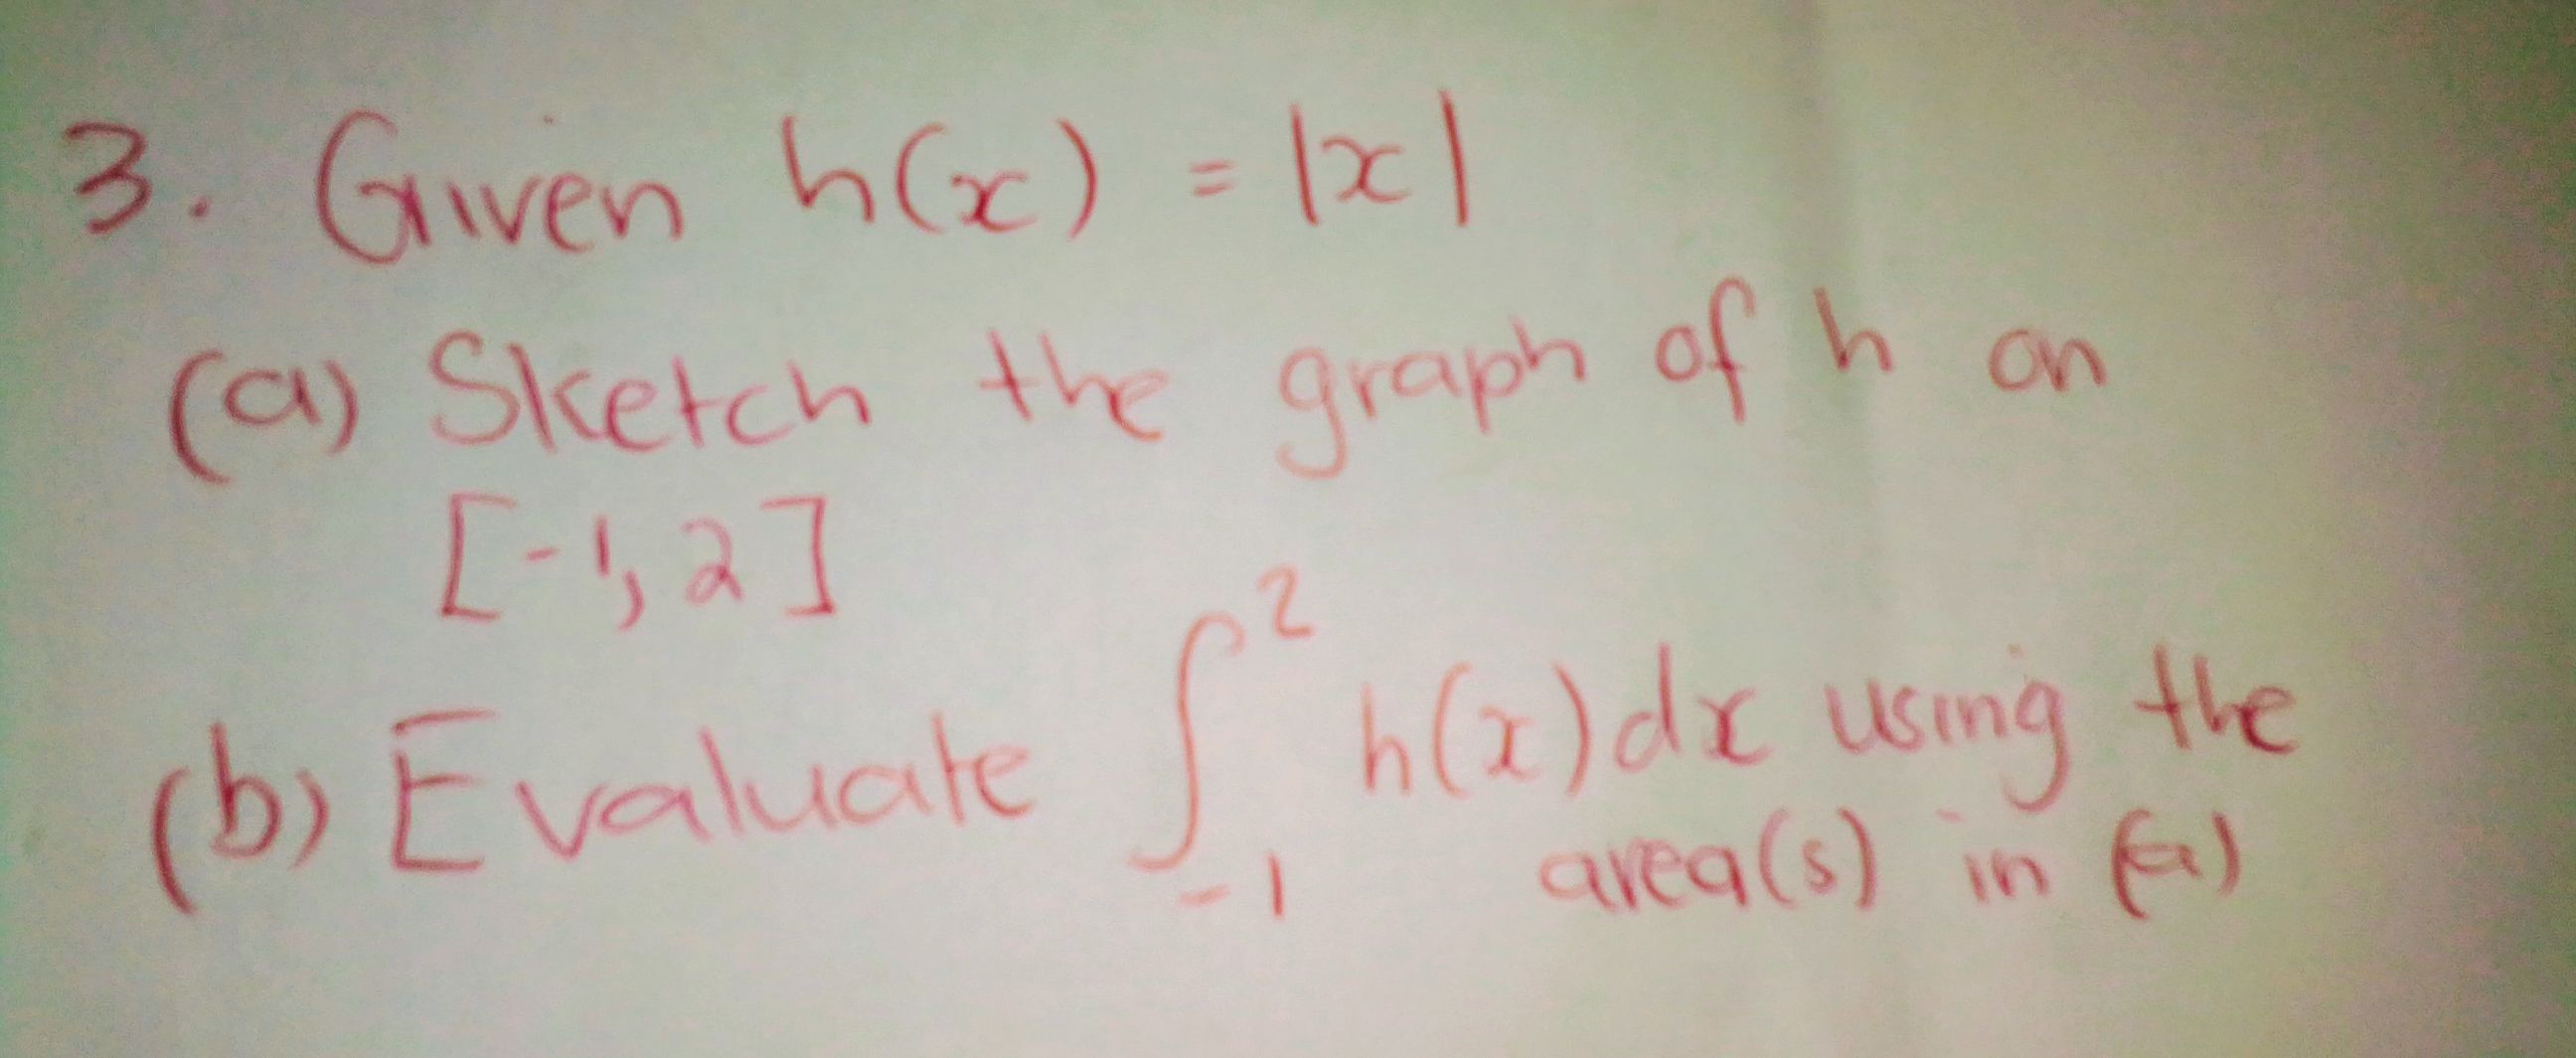 3. Given h(x) = |x|
(a) Sketch the graph of h on
[-1, 2]
(b) Evaluate ∫_{-1}^{2} h(x)dx using the
area(s) in (a)